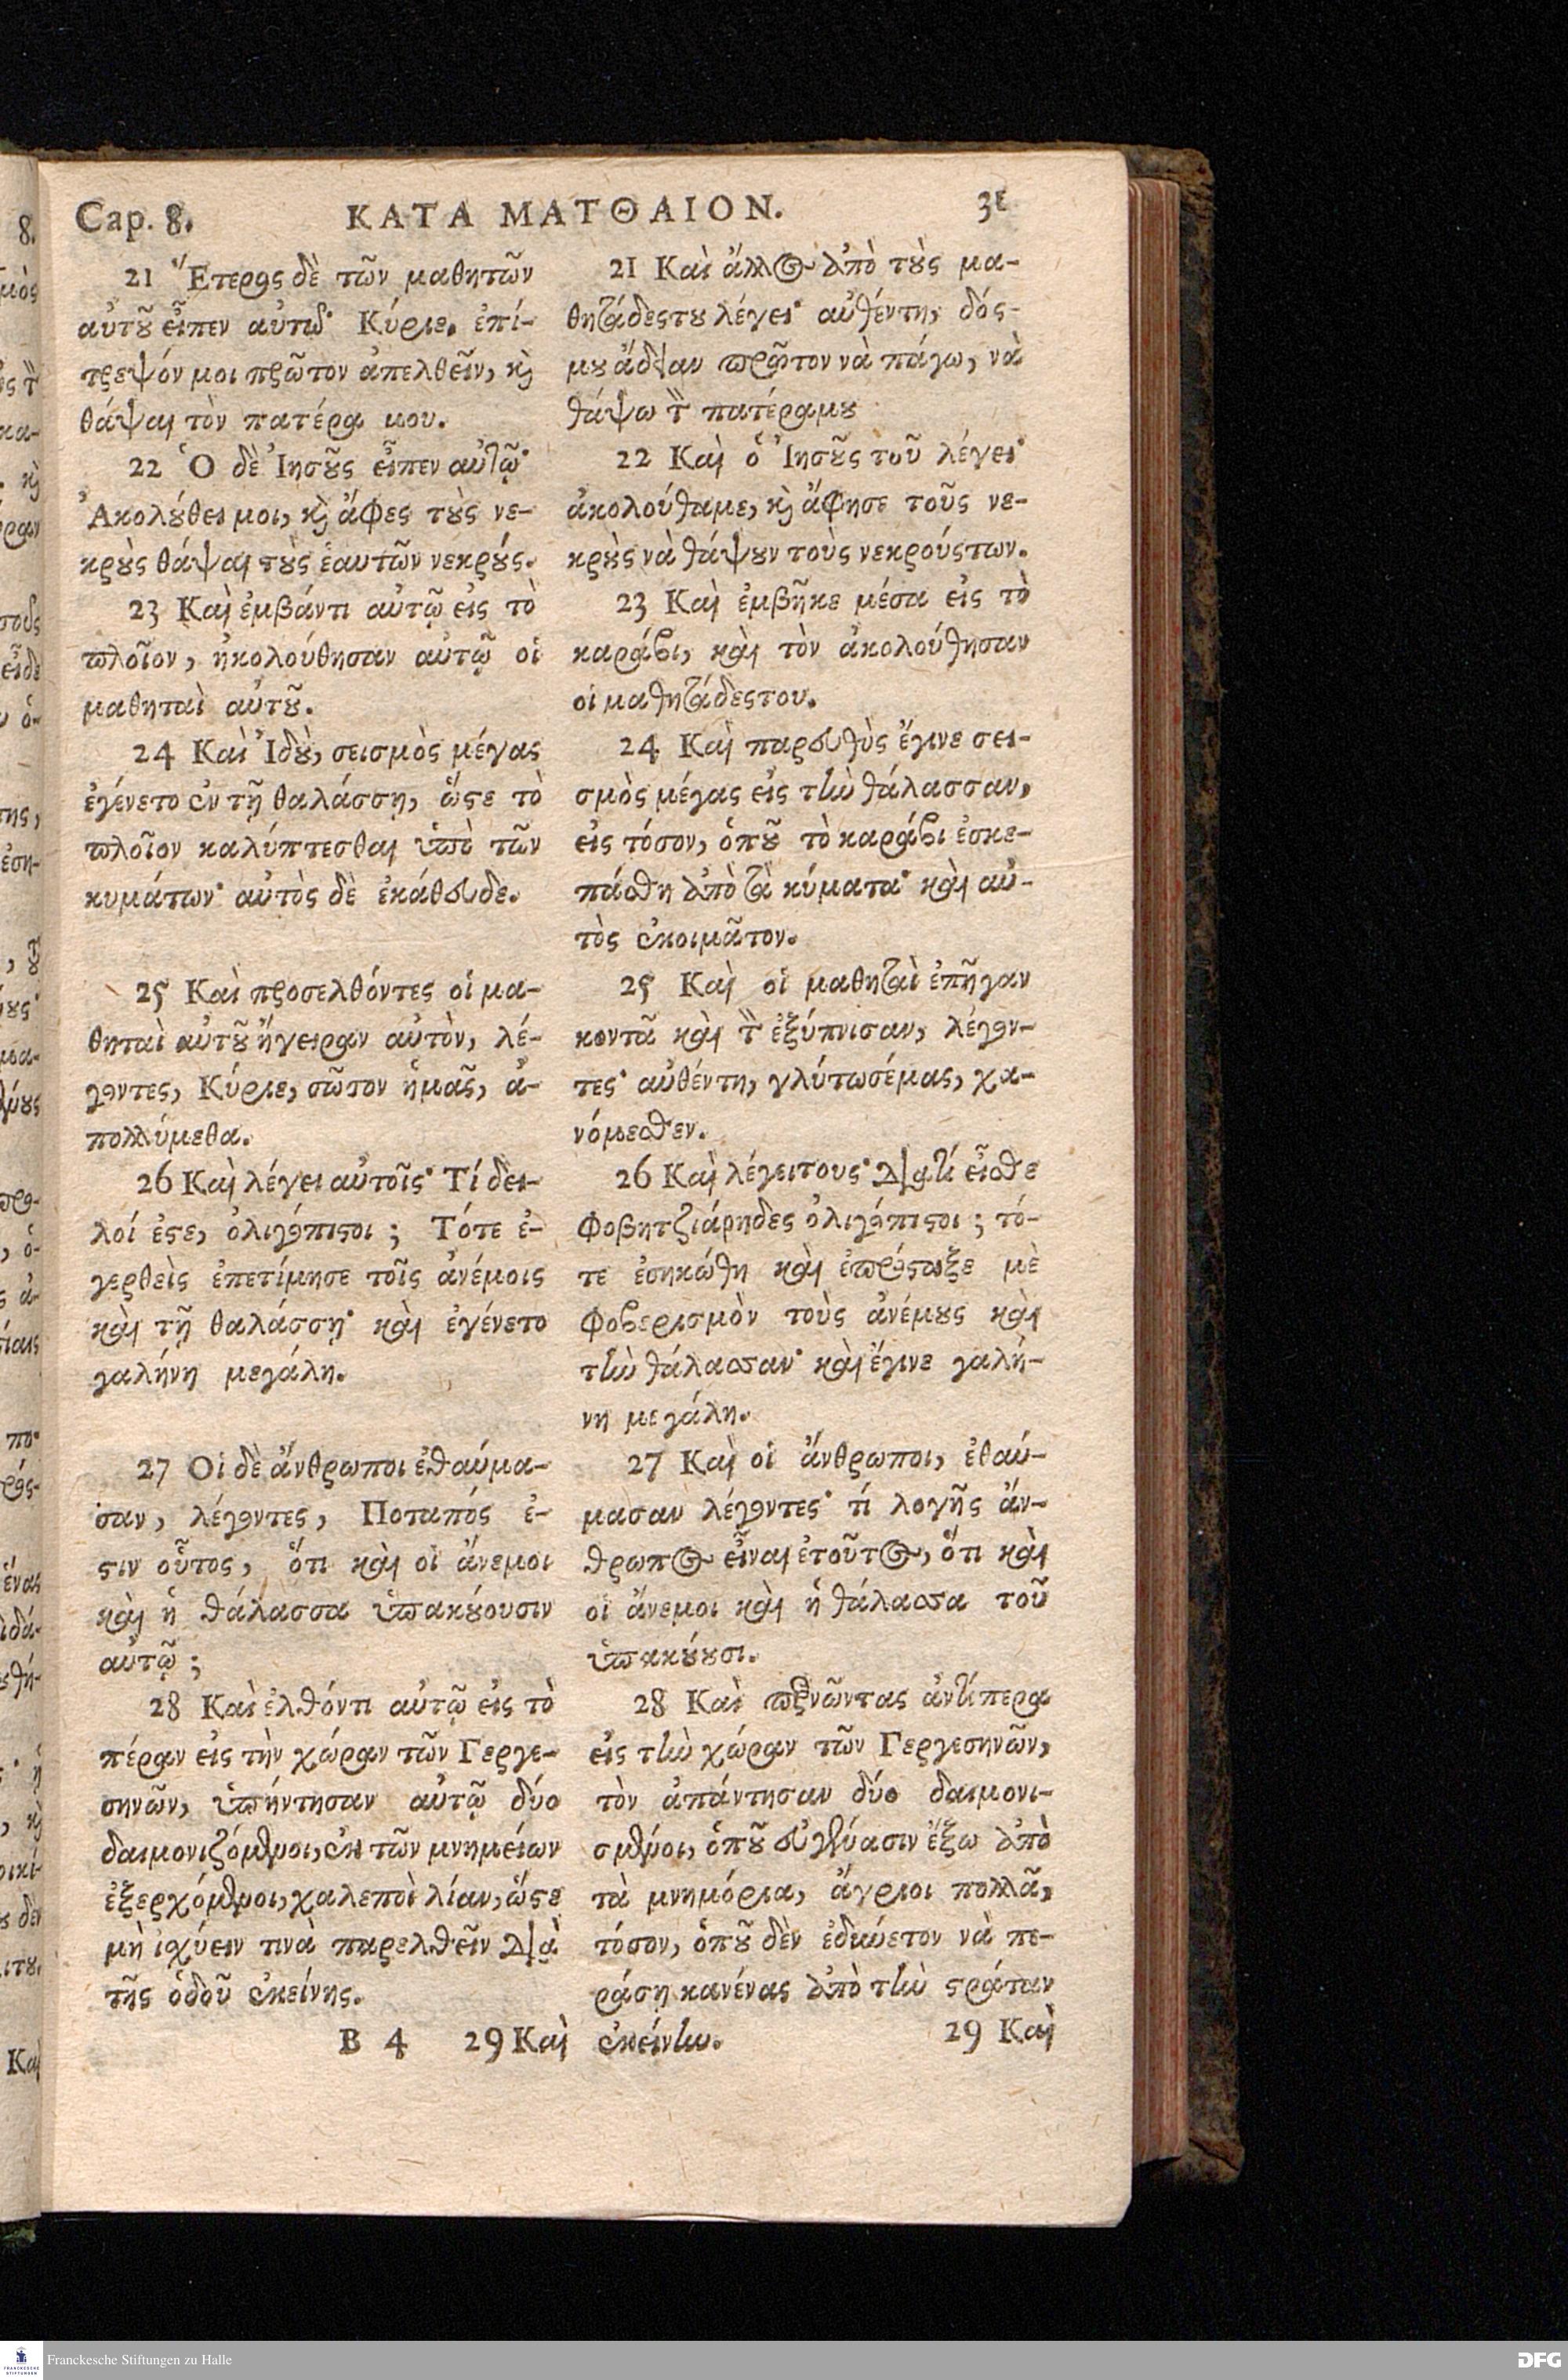 Cap. 8. ΚΑΤΑ ΜΑΤΘΑΙΟΝ. 31
21 Ἕτερος δὲ τῶν μαθητῶν
αὐτȣ͂ εἶπεν αὐτῳ· Κύριε. ἐπί-
τρεψόν μοι πρῶτον ἀπελθεῖν, ϗ̀
θάψαι τὸν πατέρα μου.
22 Ὁ δὲ Ἰησȣ͂ς εἶπεν αὐτῷ·
Ἀκολȣ́θει μοι, ϗ̀ ἄφες τȣ̀ς νε-
κρȣ̀ς θάψαι τȣ̀ς ἑαυτῶν νεκρȣ́ς.
23 Καὶ ἐμβάντι αὐτῷ εἰς τὸ
πλοῖον, ἠκολούθησαν αὐτῷ οἱ
μαθηταὶ αὐτȣ͂.
24 Καὶ Ἰδȣ̀, σεισμὸς μέγας
ἐγένετο ἐν τῇ θαλάσσῃ, ὥϛε τὸ
πλοῖον καλύπτεσθαι ὑπὸ τῶν
κυμάτων· αὐτὸς δὲ ἐκάθευδε.
25 Καὶ προσελθόντες οἱ μα-
θηταὶ αὐτȣ͂ ἤγειραν αὐτὸν, λέ-
γοντες, Κύριε, σῶτον ἡμᾶς, ἀ-
πολλύμεθα.
26 Καὶ λέγει αὐτοῖς· Τί δει-
λοί ἐϛε, ὀλιγόπιϛοι; Τότε ἐ-
γερθεὶς ἐπετίμησε τοῖς ἀνέμοις
καὶ τῇ θαλάσσῃ· καὶ ἐγένετο
γαλήνη μεγάλη.
27 Οἱ δὲ ἄνθρωποι ἐθαύμα-
σαν, λέγοντες, Ποταπός ἐ-
ϛιν οὗτος, ὅτι καὶ οἱ ἄνεμοι
καὶ ἡ θάλασσα ὑπακȣ́ουσιν
αὐτῷ;
28 Καὶ ἐλθόντι αὐτῷ εἰς τὸ
πέραν εἰς τὴν χώραν τῶν Γεργε-
σηνῶν, ὑπήντησαν αὐτῷ δύο
δαιμονιζόμενοι, ἐκ τῶν μνημείων
ἐξερχόμενοι, χαλεποὶ λίαν, ὥϛε
μὴ ἰσχύειν τινὰ παρελθεῖν διὰ
τῆς ὁδοῦ ἐκείνης.
B 4 29 Καὶ
21 Καὶ ἄλλος ἀπὸ τȣ̀ς μα-
θητάδεςτȣ λέγει· αὐθέντη, δός-
μȣ ἄδειαν πρῶτον νὰ πάγω, νὰ
θάψω τ̀ πατέραμȣ
22 Καὶ ὁ Ἰησȣ͂ς τοῦ λέγει·
ἀκολούθαμε, ϗ̀ ἄφησε τοῦς νε-
κρȣ̀ς νὰ θάψȣν τοὺς νεκρούςτων.
23 Καὶ ἐμβῆκε μέσα εἰς τὸ
καράβι, καὶ τὸν ἀκολούθησαν
οἱ μαθητάδεςτου.
24 Καὶ παρευθὺς ἔγινε σει-
σμὸς μέγας εἰς τὴν θάλασσαν,
εἰς τόσον, ὁπȣ͂ τὸ καράβι ἐσκε-
πάσθη ἀπὸ τὰ κύματα· καὶ αὐ-
τὸς ἐκοιμᾶτον.
25 Καὶ οἱ μαθηταὶ ἐπῆγαν
κοντᾶ καὶ τ̀ ἐξύπνισαν, λέγον-
τες· αὐθέντη, γλύτωσέμας, χα-
νόμεσθεν.
26 Καὶ λέγειτους· Διατί εἶσθε
φοβητζιάρηδες ὀλιγόπιϛοι; τό-
τε ἐσηκώθη καὶ ἐπρόϛαξε μὲ
φοβερισμὸν τοὺς ἀνέμȣς καὶ
τὴν θάλασσαν· καὶ ἔγινε γαλή-
νη μεγάλη.
27 Καὶ οἱ ἄνθρωποι, ἐθαύ-
μασαν λέγοντες· τί λογῆς ἄν-
θρωπος εἶναι ἐτοῦτος, ὅτι καὶ
οἱ ἄνεμοι καὶ ἡ θάλασσα τοῦ
ὑπακȣ́ȣσι.
28 Καὶ περνῶντας ἀντίπερα
εἰς τὴν χώραν τῶν Γεργεσηνῶν,
τὸν ἀπάντησαν δύο δαιμονι-
σμένοι, ὁπȣ͂ εὐγένασιν ἔξω ἀπὸ
τὰ μνημόρια, ἄγριοι πολλᾶ,
τόσον, ὁπȣ͂ δὲν ἐδυνέτον νὰ πε-
ράσῃ κανένας ἀπὸ τὴν ϛράταν
ἐκείνην. 29 Καὶ
Franckesche Stiftungen zu Halle
DFG